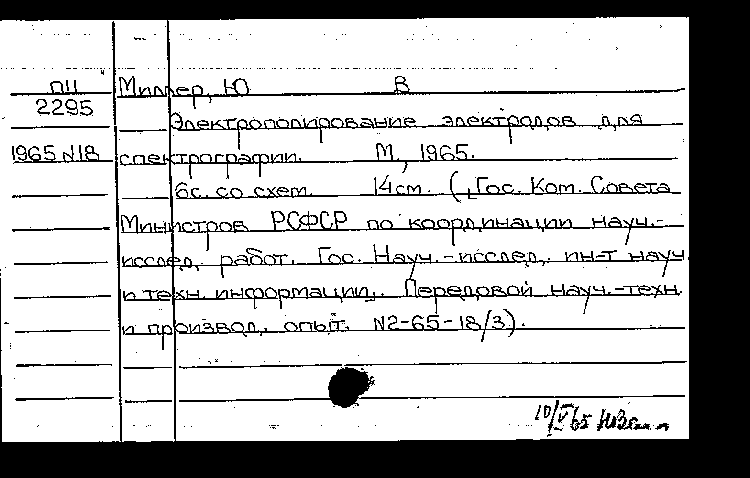 ПП Миллер, Ю В
2295
Электрополирование электродов для
1965 N18 спектрографии. М., 1965.
6с. со схем. 14см. (,Гос. Ком. Совета
Министров РСФСР по координации науч.-
исслед. работ. Гос. Науч.-исслед. ин-т науч
и техн. информации,. Передовой науч.-техн.
и производ. опыт. N2-65-18/3).
10/V 65